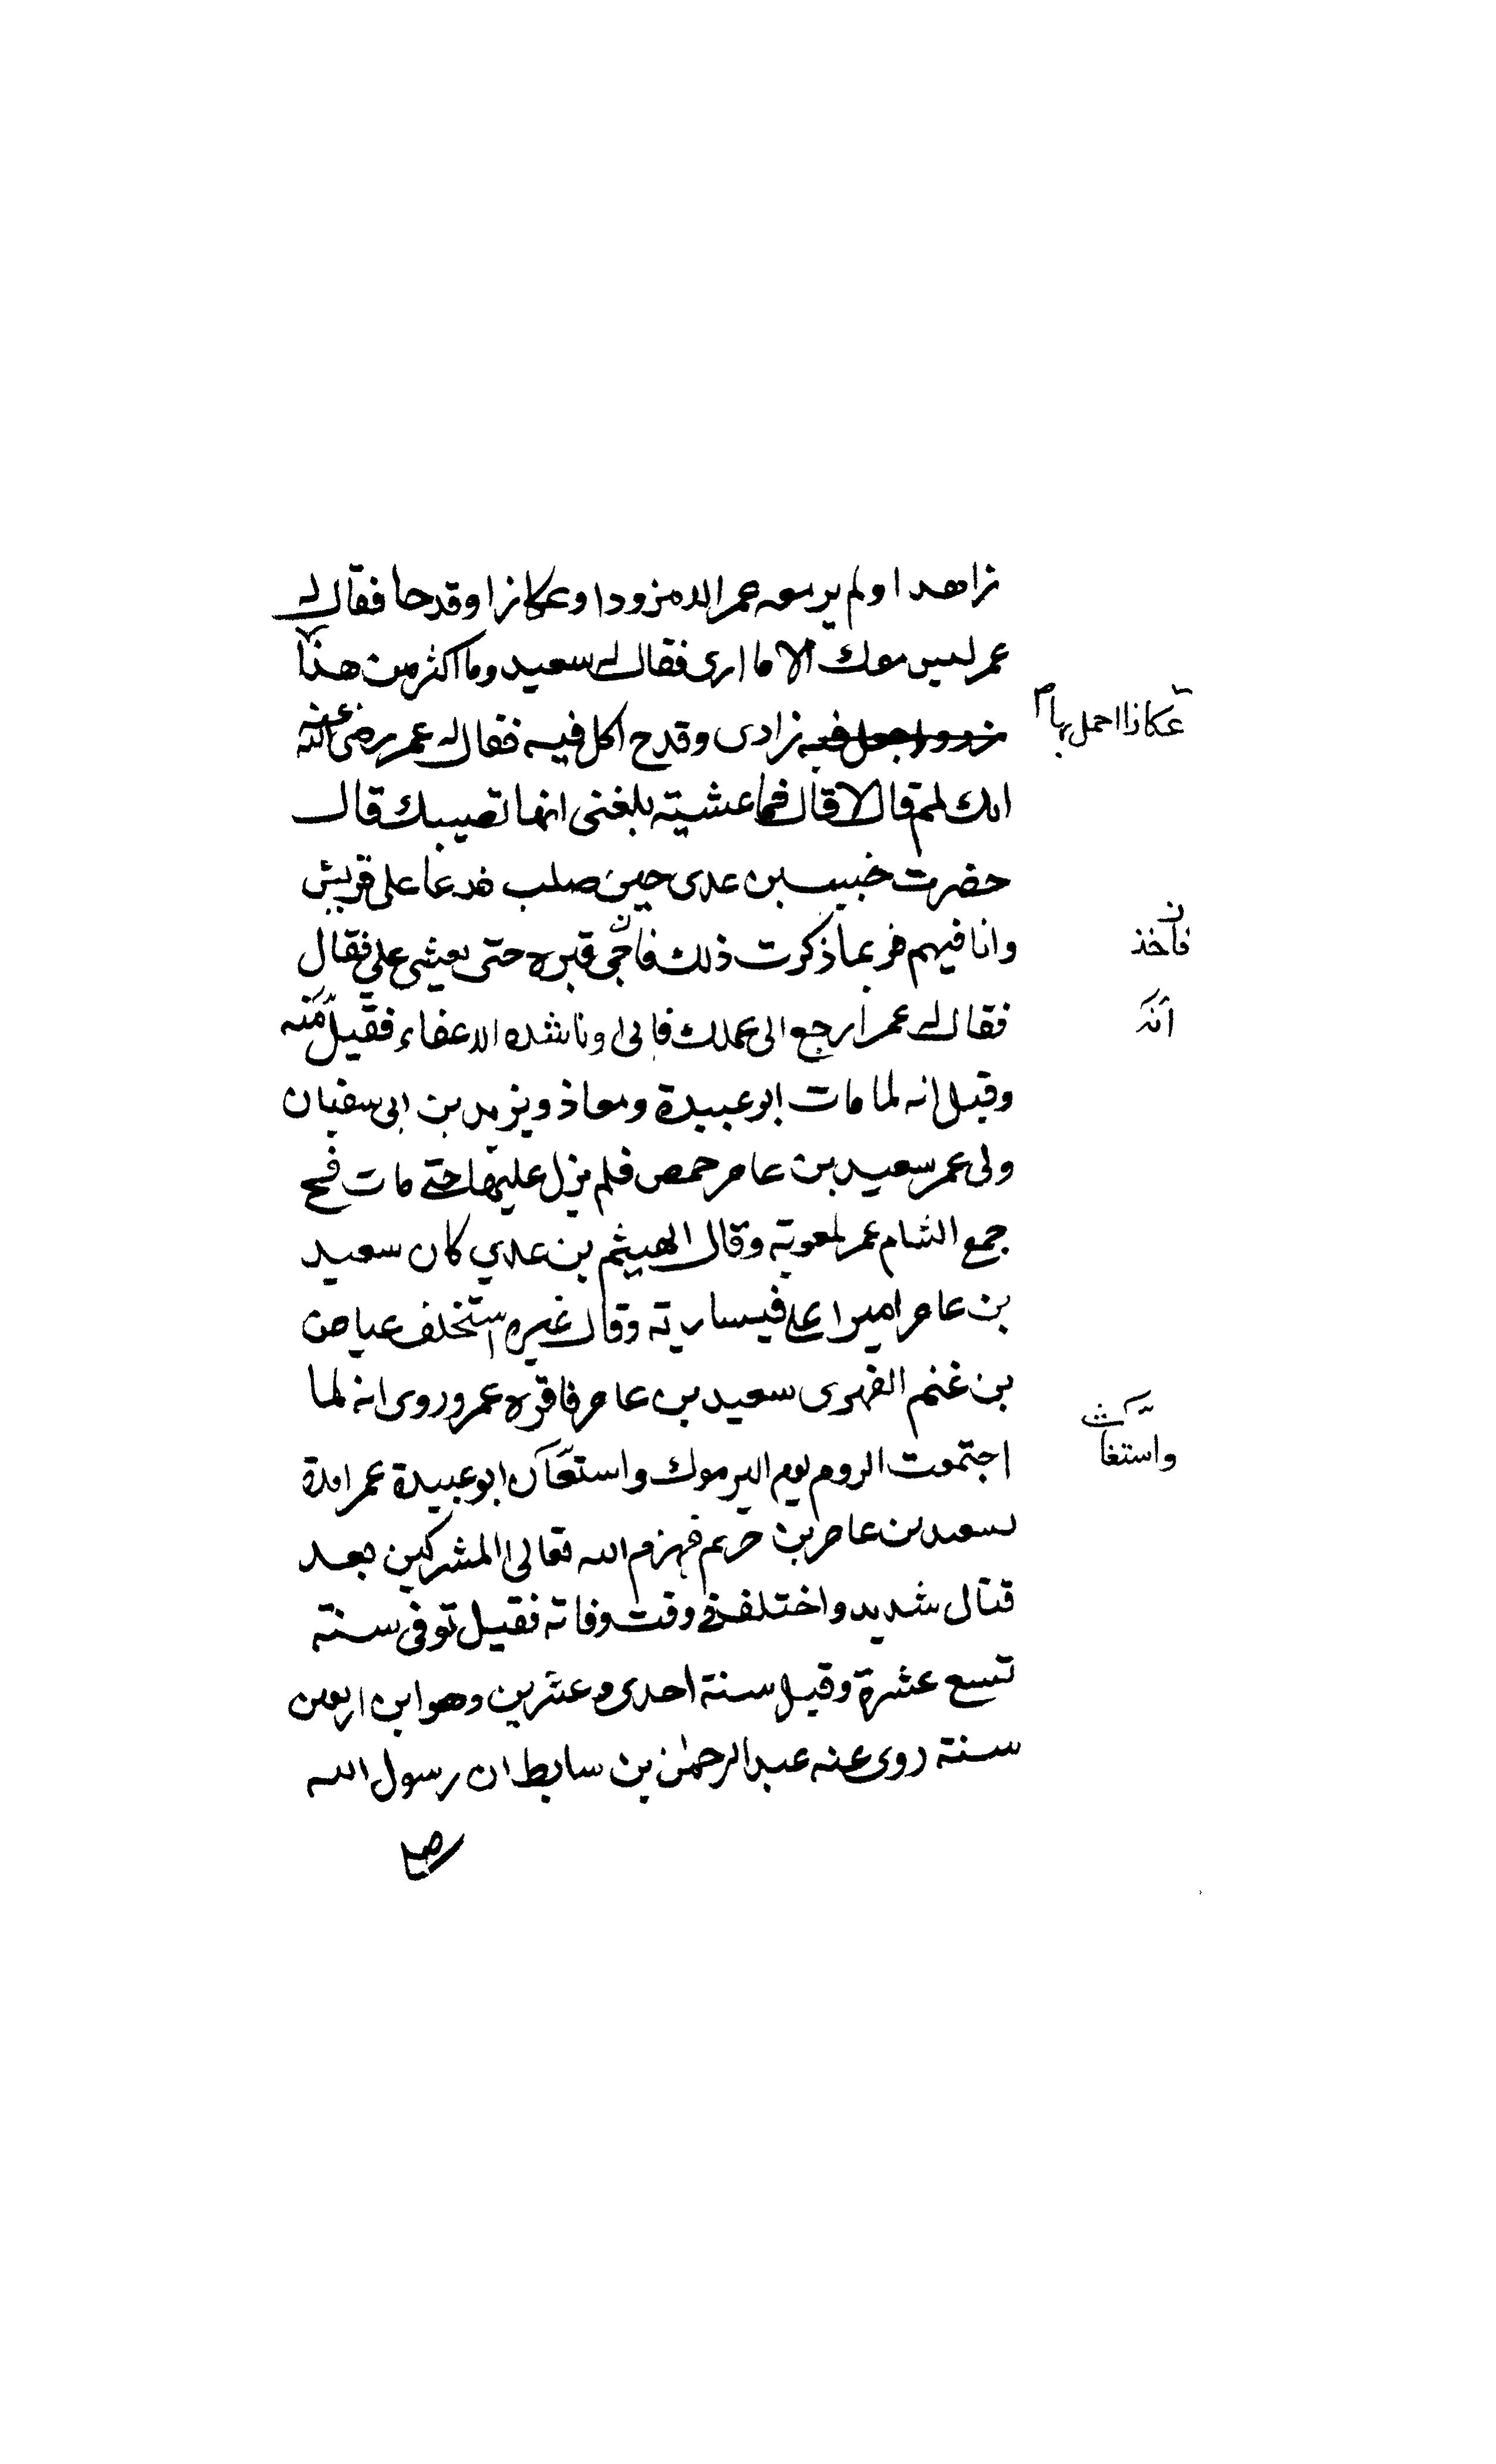 زاهدا ولم ير معه عمر الا مزودا وعكازا وقدحا فقال له
عمر ليس معك الا ما ارى فقال له سعيد وما اكثر من هذا
عكازا احمل بها
زادى وقدح اكل فيه فقال له عمر رضى الله عنه
ابك لمم قال لا قال فما غشيته بلغنى انها تصيبك قال
حضرت خبيب بن عدى حين صلب فدعا على قريش
وانا فيهم فربما ذكرت ذلك فاجى قبره حتى يغشى على فقال
فاخذ
فقال له عمر ارجع الى عملك فابى وناشده الا عفاء فقيل منه
انه
وقيل انه لما مات ابو عبيدة ومعاذ ويزيد بن ابى سفيان
ولى عمر سعيد بن عامر حمص فلم يزل عليها حتى مات فح
جمع الشام عمر لمعوية وقال الهيثم بن عدي كان سعيد
بن عامر اميرا على قيسارية وقال غيره استخلف عياض
بن غنم الفهرى سعيد بن عامر فاقره عمر وروى انه لما
اجتمعت الروم يوم اليرموك واستغاث ابو عبيدة عمر امده
واستغاث
بسعيد بن عامر بن حريم فهزم الله تعالى المشركين بعد
قتال شديد واختلف فى وقت وفاته فقيل توفى سنة
تسع عشرة وقيل سنة احدى وعشرين وهو ابن اربعين
سنة روى عنه عبد الرحمٰن بن سابط ان رسول الله